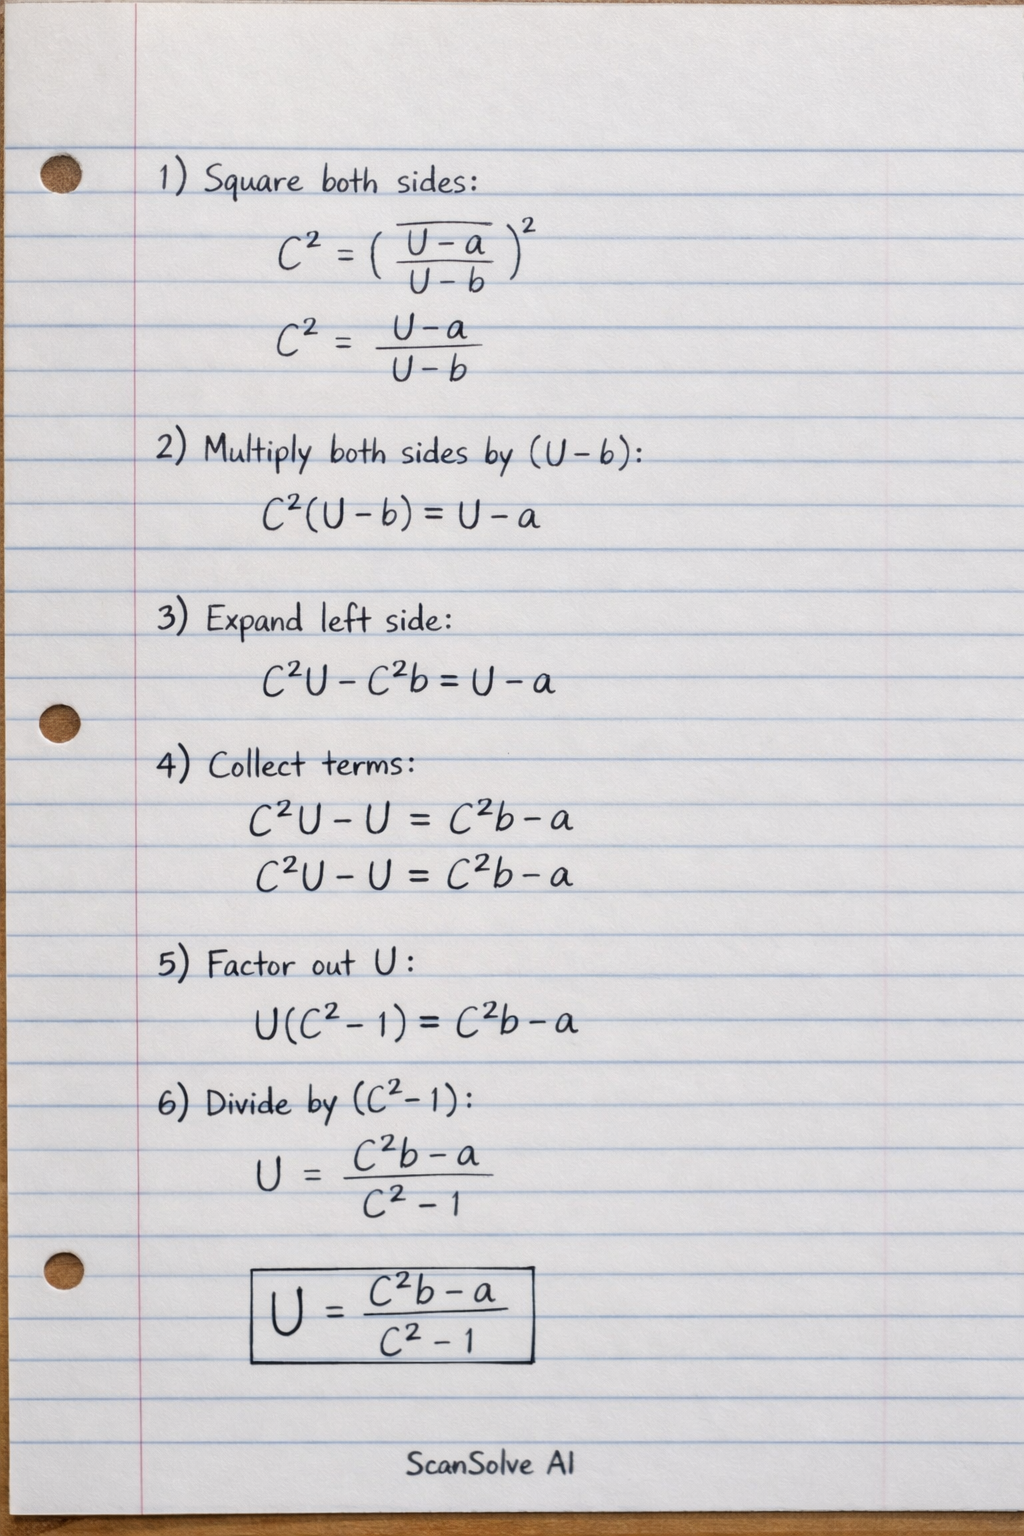 1) Square both sides:
C² = ( U - a / U - b )²
C² = U - a / U - b
2) Multiply both sides by (U - b):
C²(U - b) = U - a
3) Expand left side:
C²U - C²b = U - a
4) Collect terms:
C²U - U = C²b - a
C²U - U = C²b - a
5) Factor out U:
U(C² - 1) = C²b - a
6) Divide by (C² - 1):
U = C²b - a / C² - 1
U = C²b - a / C² - 1
ScanSolve AI